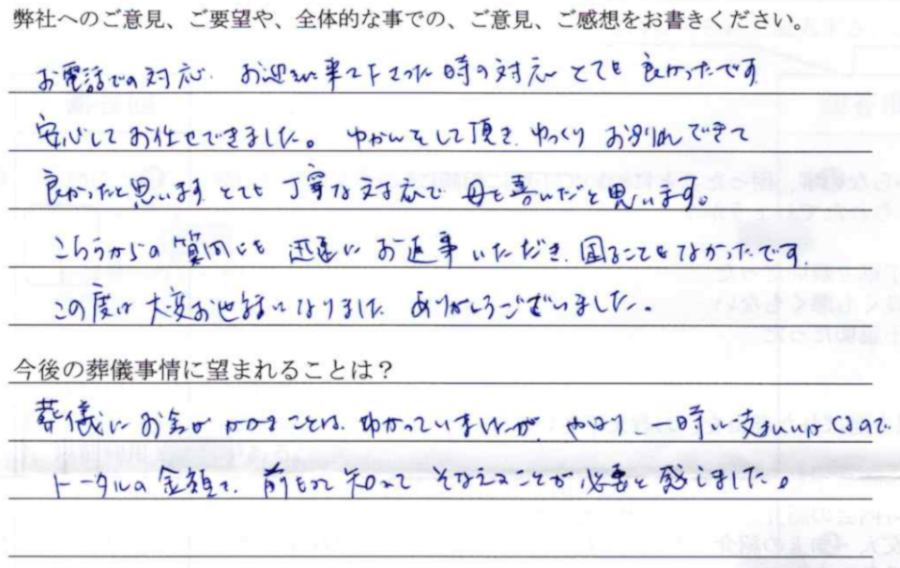 弊社へのご意見、ご要望や、全体的な事での、ご意見、ご感想をお書きください。
お電話での対応、お迎えに来て下さった時の対応とても良かったです
安心してお任せできました。ゆかんもして頂き、ゆっくりお別れできて
良かったと思います とても丁寧な対応で母も喜いだと思います。
こちらからの質問にも迅速にお返事いただき、困ることもなかったです。
この度は大変お世話になりました ありがとうございました。
今後の葬儀事情に望まれることは？
葬儀にお金がかかることは、わかっていましたが、やはり一時に支払いがくるので
トータルの金額を、前もって知って そなえることが必要と感じました。